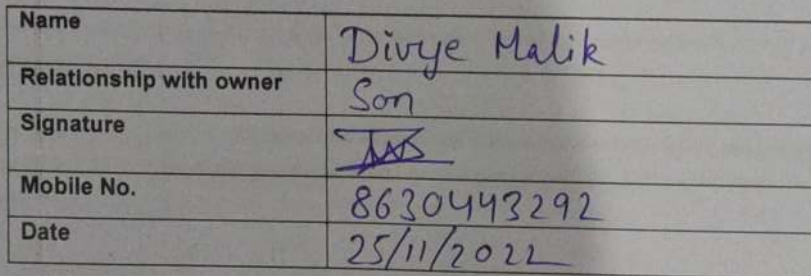 Name Divye Malik
Relationship with owner Son
Signature
Mobile No. 8630443292
Date 25/11/2022